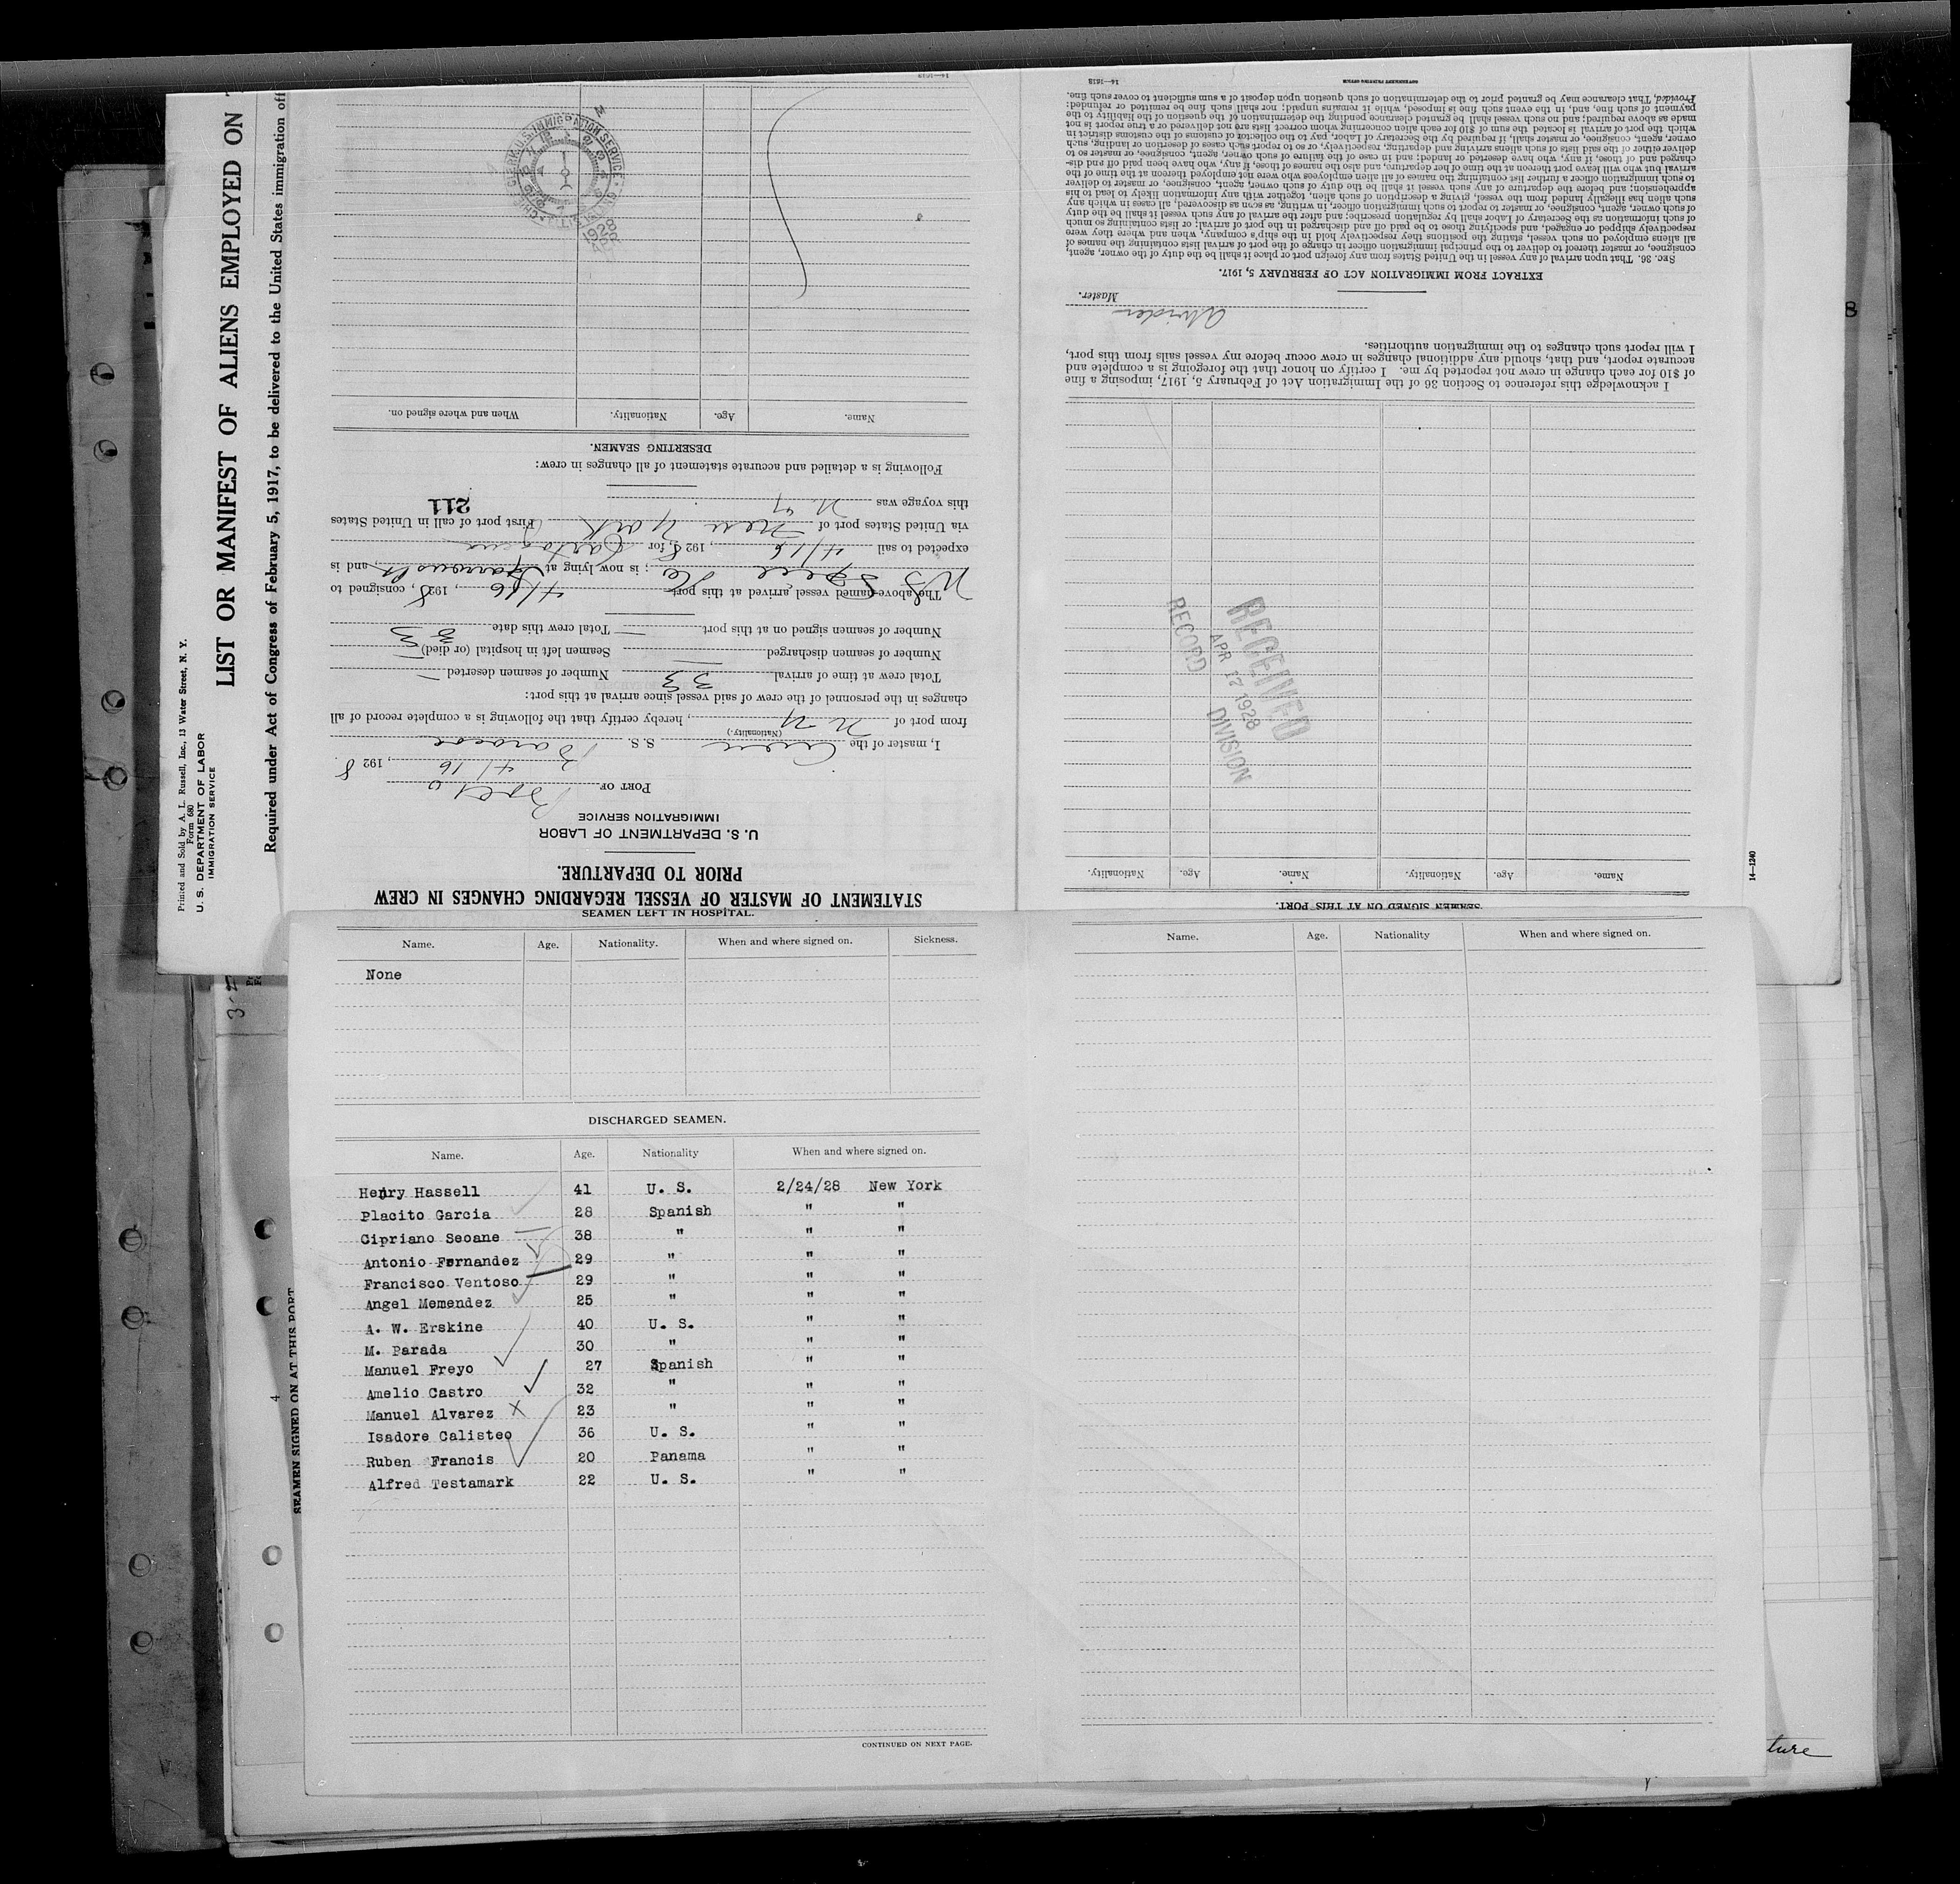 Printed and Sold by A. L. Russell, Inc., 13 Water Street, N. Y.
Form 680
U. S. DEPARTMENT OF LABOR
IMMIGRATION SERVICE
LIST OR MANIFEST OF ALIENS EMPLOYED ON
Required under Act of Congress of February 5, 1917, to be delivered to the United States immigration off
STATEMENT OF MASTER OF VESSEL REGARDING CHANGES IN CREW
PRIOR TO DEPARTURE.
U. S. DEPARTMENT OF LABOR
IMMIGRATION SERVICE
PORT OF
4/16, 1928
I, master of the S. S.
(Nationality.)
from port of N Y, hereby certify that the following is a complete record of all
changes in the personnel of the crew of said vessel since arrival at this port:
Total crew at time of arrival 33 Number of seamen deserted —
Number of seamen discharged — Seamen left in hospital (or died) —
Number of seamen signed on at this port — Total crew this date 33
The above-named vessel arrived at this port 4/16, 1928, consigned to
; is now lying at , and is
expected to sail 4/16, 1928, for Cartagena
via United States port of New York First port of call in United States
this voyage was N. Y
211
Following is a detailed and accurate statement of all changes in crew:
DESERTING SEAMEN.
Name. Age. Nationality. When and where signed on.
14—1613
SEAMEN SIGNED ON AT THIS PORT.
Name. Age. Nationality. Name. Age. Nationality.
RECEIVED
APR 17 1928
RECORD DIVISION
I acknowledge this reference to Section 36 of the Immigration Act of February 5, 1917, imposing a fine
of $10 for each change in crew not reported by me. I certify on honor that the foregoing is a complete and
accurate report, and that, should any additional changes in crew occur before my vessel sails from this port,
I will report such changes to the immigration authorities.
Master.
EXTRACT FROM IMMIGRATION ACT OF FEBRUARY 5, 1917.
SEC. 36. That upon arrival of any vessel in the United States from any foreign port or place it shall be the duty of the owner, agent,
consignee, or master thereof to deliver to the principal immigration officer in charge of the port of arrival lists containing the names of
all aliens employed on such vessel, stating the positions they respectively hold in the ship's company, when and where they were
respectively shipped or engaged, and specifying those to be paid off and discharged in the port of arrival; or lists containing so much
of such information as the Secretary of Labor shall by regulation prescribe; and after the arrival of any such vessel it shall be the duty
of such owner, agent, consignee, or master to report to such immigration officer, in writing, as soon as discovered, all cases in which any
such alien has illegally landed from the vessel, giving a description of such alien, together with any information likely to lead to his
apprehension; and before the departure of any such vessel it shall be the duty of such owner, agent, consignee, or master to deliver
to such immigration officer a further list containing the names of all alien employees who were not employed thereon at the time of the
arrival but who will leave port thereon at the time of her departure, and also the names of those, if any, who have been paid off and dis-
charged and of those, if any, who have deserted or landed; and in case of the failure of such owner, agent, consignee, or master so to
deliver either of the said lists of such aliens arriving and departing, respectively, or so to report such cases of desertion or landing, such
owner, agent, consignee, or master shall, if required by the Secretary of Labor, pay to the collector of customs of the customs district in
which the port of arrival is located the sum of $10 for each alien concerning whom correct lists are not delivered or a true report is not
made as above required; and no such vessel shall be granted clearance pending the determination of the question of the liability to the
payment of such fine, and, in the event such fine is imposed, while it remains unpaid; nor shall such fine be remitted or refunded:
Provided, That clearance may be granted prior to the determination of such question upon deposit of a sum sufficient to cover such fine.
14—1613 GOVERNMENT PRINTING OFFICE
14—1240
SEAMEN LEFT IN HOSPITAL.
Name. Age. Nationality. When and where signed on. Sickness.
None
DISCHARGED SEAMEN.
Name. Age. Nationality When and where signed on.
Henry Hassell 41 U. S. 2/24/28 New York
Placito Garcia 28 Spanish " "
Cipriano Seoane 38 " " "
Antonio Fernandez 29 " " "
Francisco Ventoso 29 " " "
Angel Memendez 25 " " "
A. W. Erskine 40 U. S. " "
M. Parada 30 " " "
Manuel Freyo 27 Spanish " "
Amelio Castro 32 " " "
Manuel Alvarez 23 " " "
Isadore Calisteo 36 U. S. " "
Ruben Francis 20 Panama " "
Alfred Testamark 22 U. S. " "
CONTINUED ON NEXT PAGE.
Name. Age. Nationality When and where signed on.
SEAMEN SIGNED ON AT THIS PORT
4
ture